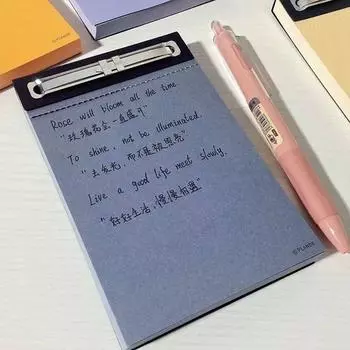 Rose will bloom all the time
"玫瑰总会一直盛开"
To shine, not be illuminated.
"去发光,而不是被照亮"
Live a good life meet slowly.
"好好生活,慢慢相遇"
© PLANDS